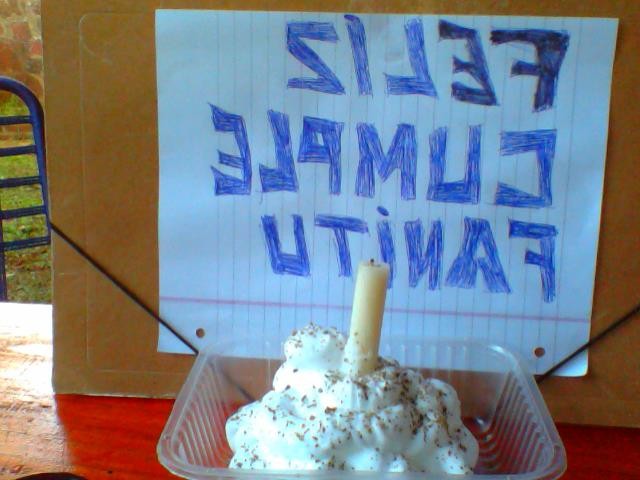 FELIZ
CUMPLE
FANiTU